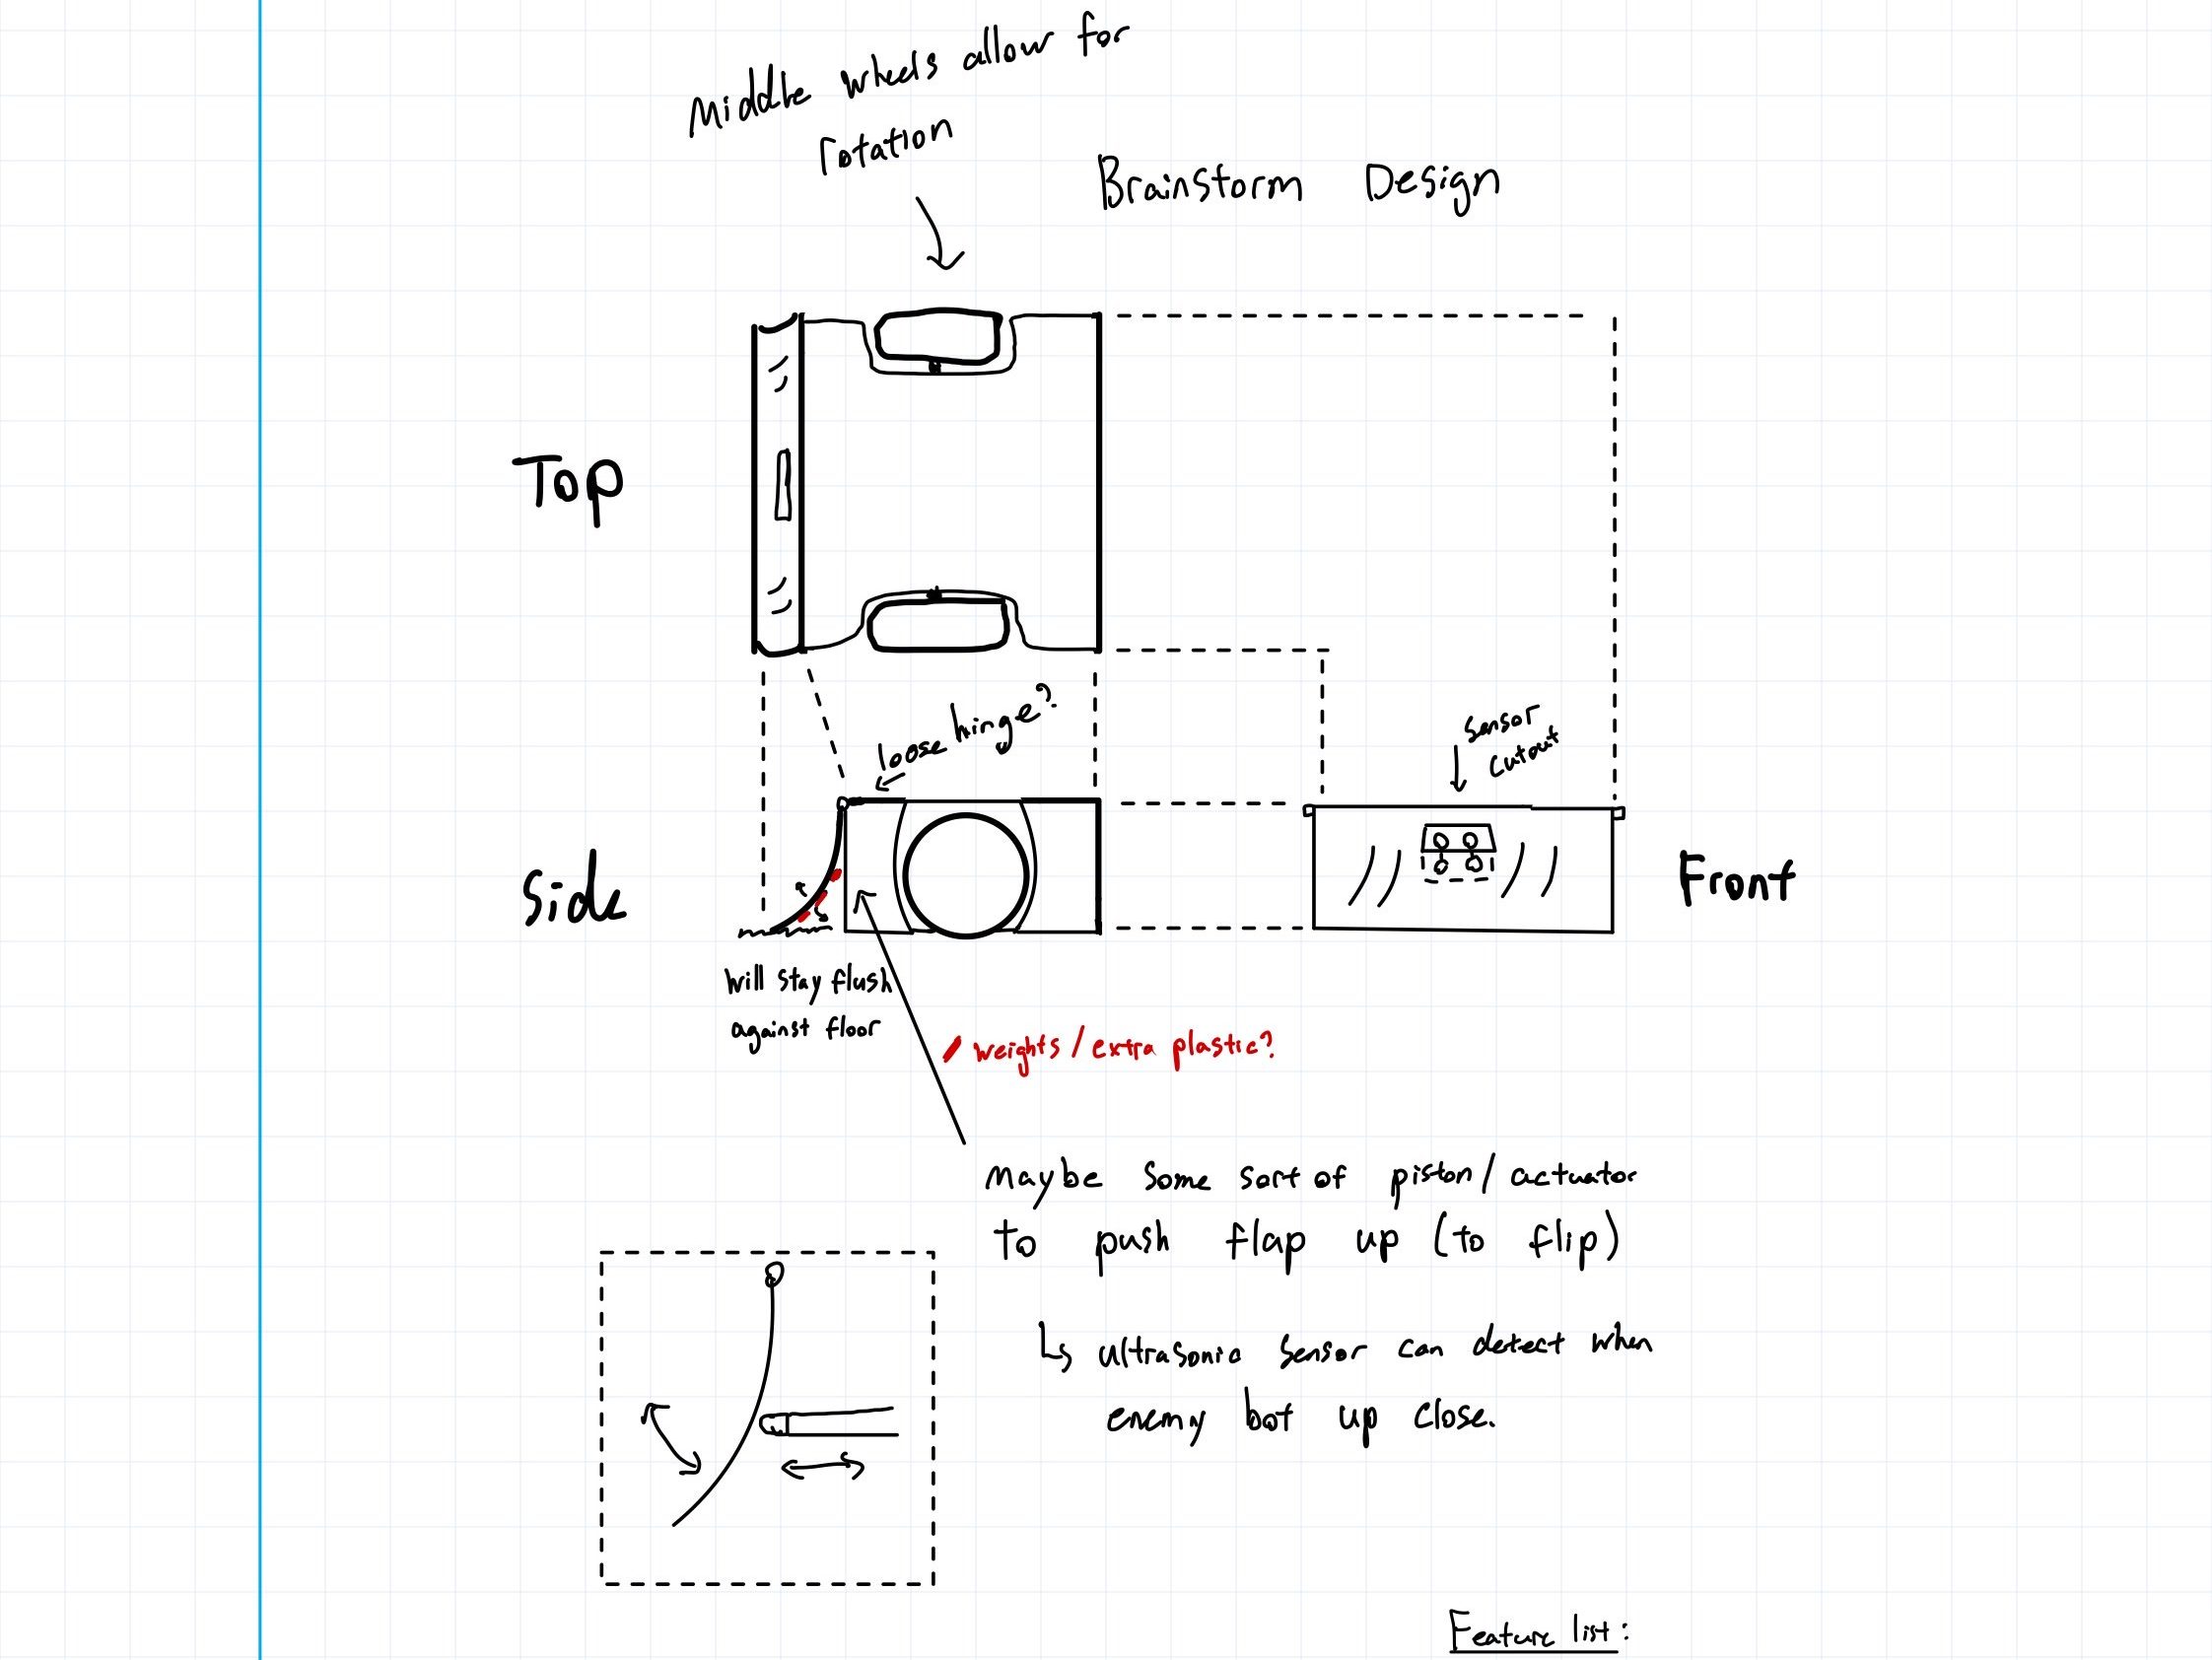 Middle wheels allow for
rotation
Brainstorm Design
Top
loose hinge?
sensor
cutout
Side
Front
will stay flush
against floor
weights/extra plastic?
Maybe some sort of piston/actuator
to push flap up (to flip)
↳ ultrasonic sensor can detect when
enemy bot up close.
Feature list: